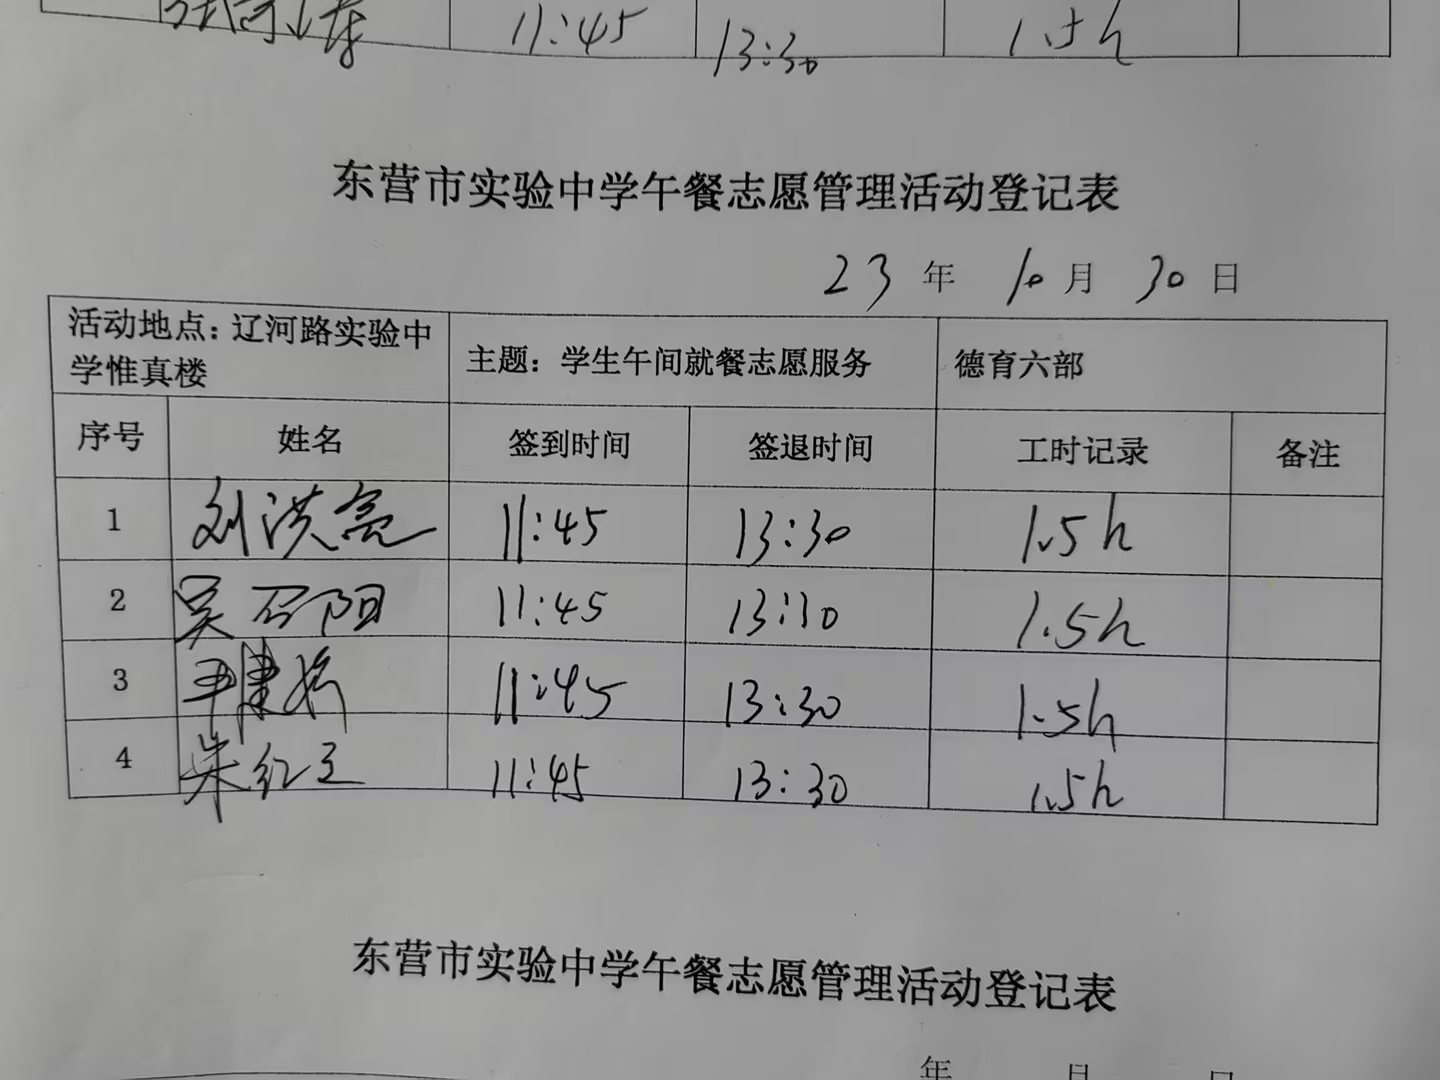 11:45 13:30 1.5h
东营市实验中学午餐志愿管理活动登记表
23 年 10 月 30 日
活动地点：辽河路实验中学惟真楼 主题：学生午间就餐志愿服务 德育六部
序号 姓名 签到时间 签退时间 工时记录 备注
1 刘洪亮 11:45 13:30 1.5h
2 吴召阳 11:45 13:30 1.5h
3 11:45 13:30 1.5h
4 朱红卫 11:45 13:30 1.5h
东营市实验中学午餐志愿管理活动登记表
年 月 日